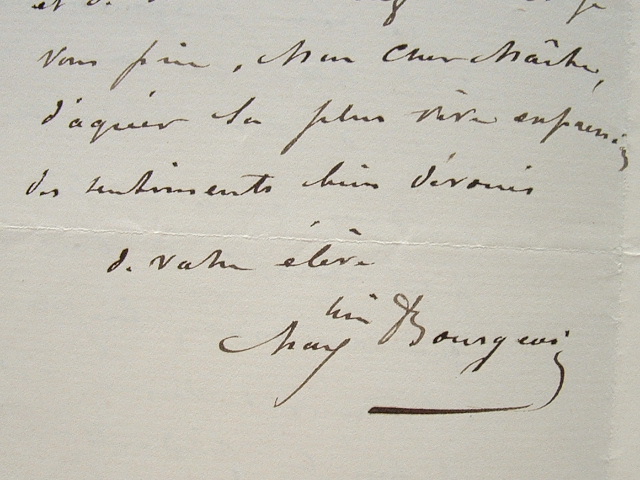 et de je
vous prie, Mon Cher Maître,
d'agréer la plus vive expression
des sentiments bien dévoués
de votre élève
Max^im Bourgeois